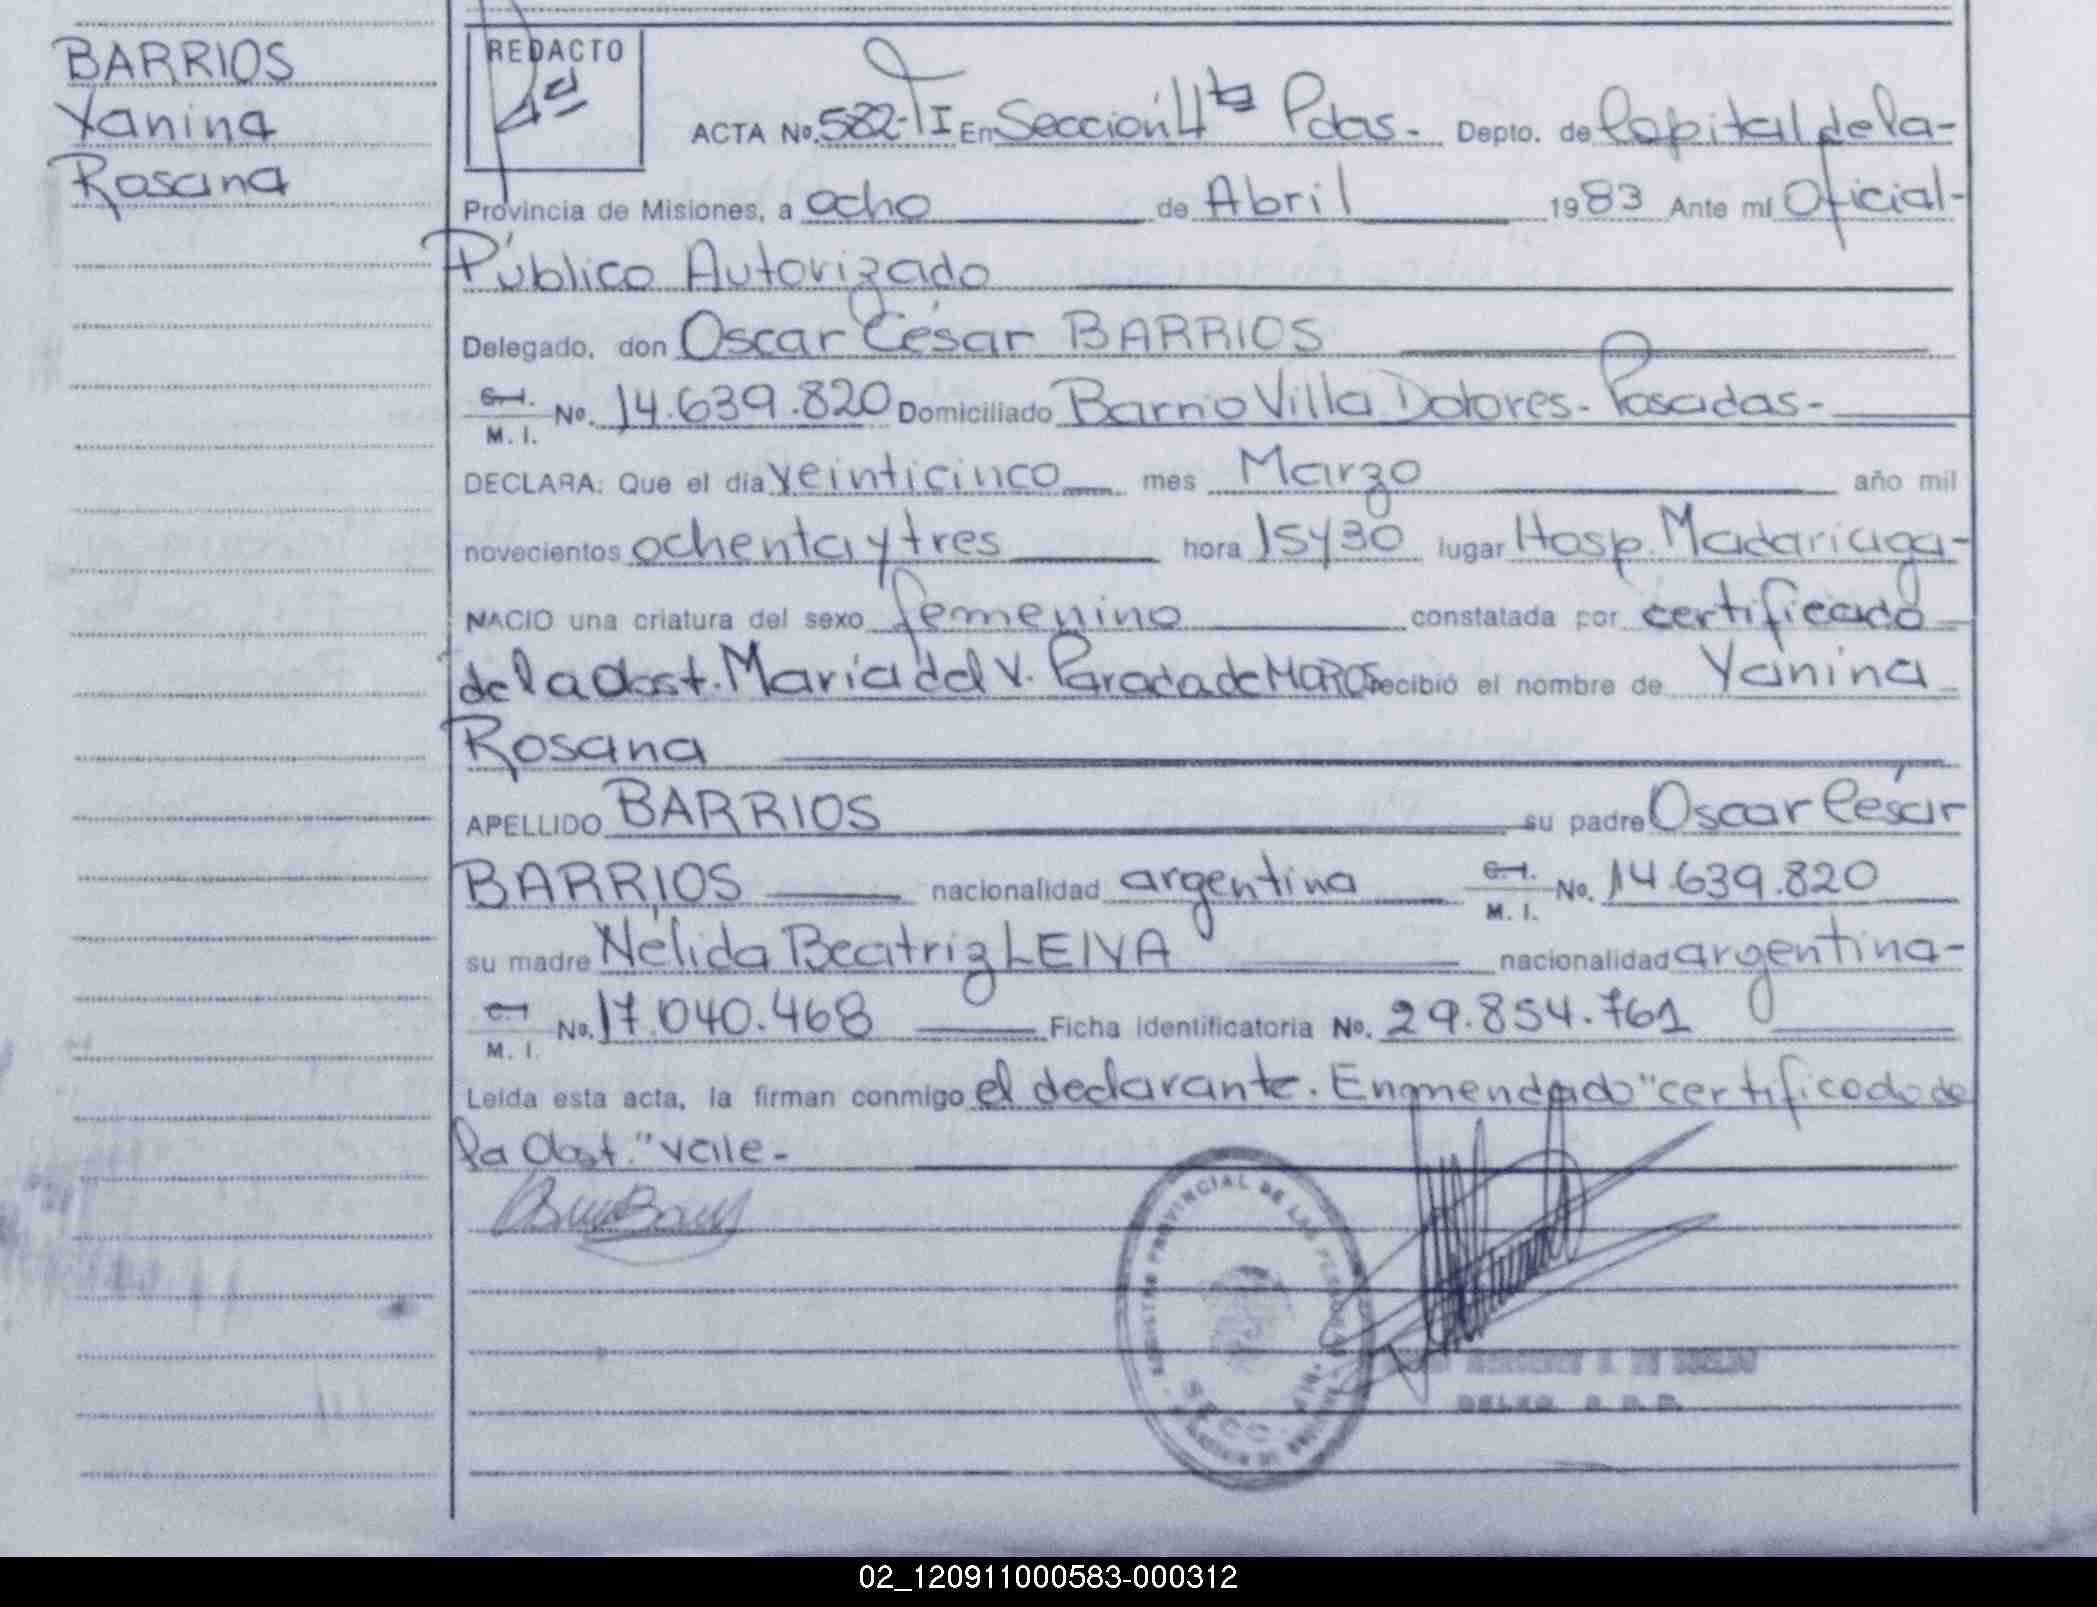 BARRIOS
Yanina
Rosana
REDACTO
ACTA No. 582-TI En Sección 4ta Pdas.- Depto. de Capital de la-
Provincia de Misiones, a ocho de Abril 1983 Ante mí Oficial-
Público Autorizado
Delegado, don Oscar César BARRIOS
C.I. M. I. No. 14.639.820 Domiciliado Barrio Villa Dolores.- Posadas.-
DECLARA: Que el día veinticinco mes Marzo año mil
novecientos ochenta y tres hora 15y30 lugar Hosp. Madariaga-
NACIO una criatura del sexo femenino constatada por certificado
de la obst. María del V. Parada de MOROS recibió el nombre de Yanina
Rosana
APELLIDO BARRIOS su padre Oscar César
BARRIOS nacionalidad argentina C.I. M. I. No. 14.639.820
su madre Nélida Beatriz LEIVA nacionalidad argentina-
C.I. M. I. No. 17.040.468 Ficha identificatoria No. 29.854.761
Leída esta acta, la firman conmigo el declarante. Enmendado "certificado de
la Obst." vale.-
REGISTRO PROVINCIAL DE LAS PERSONAS
SECC.
02_120911000583-000312